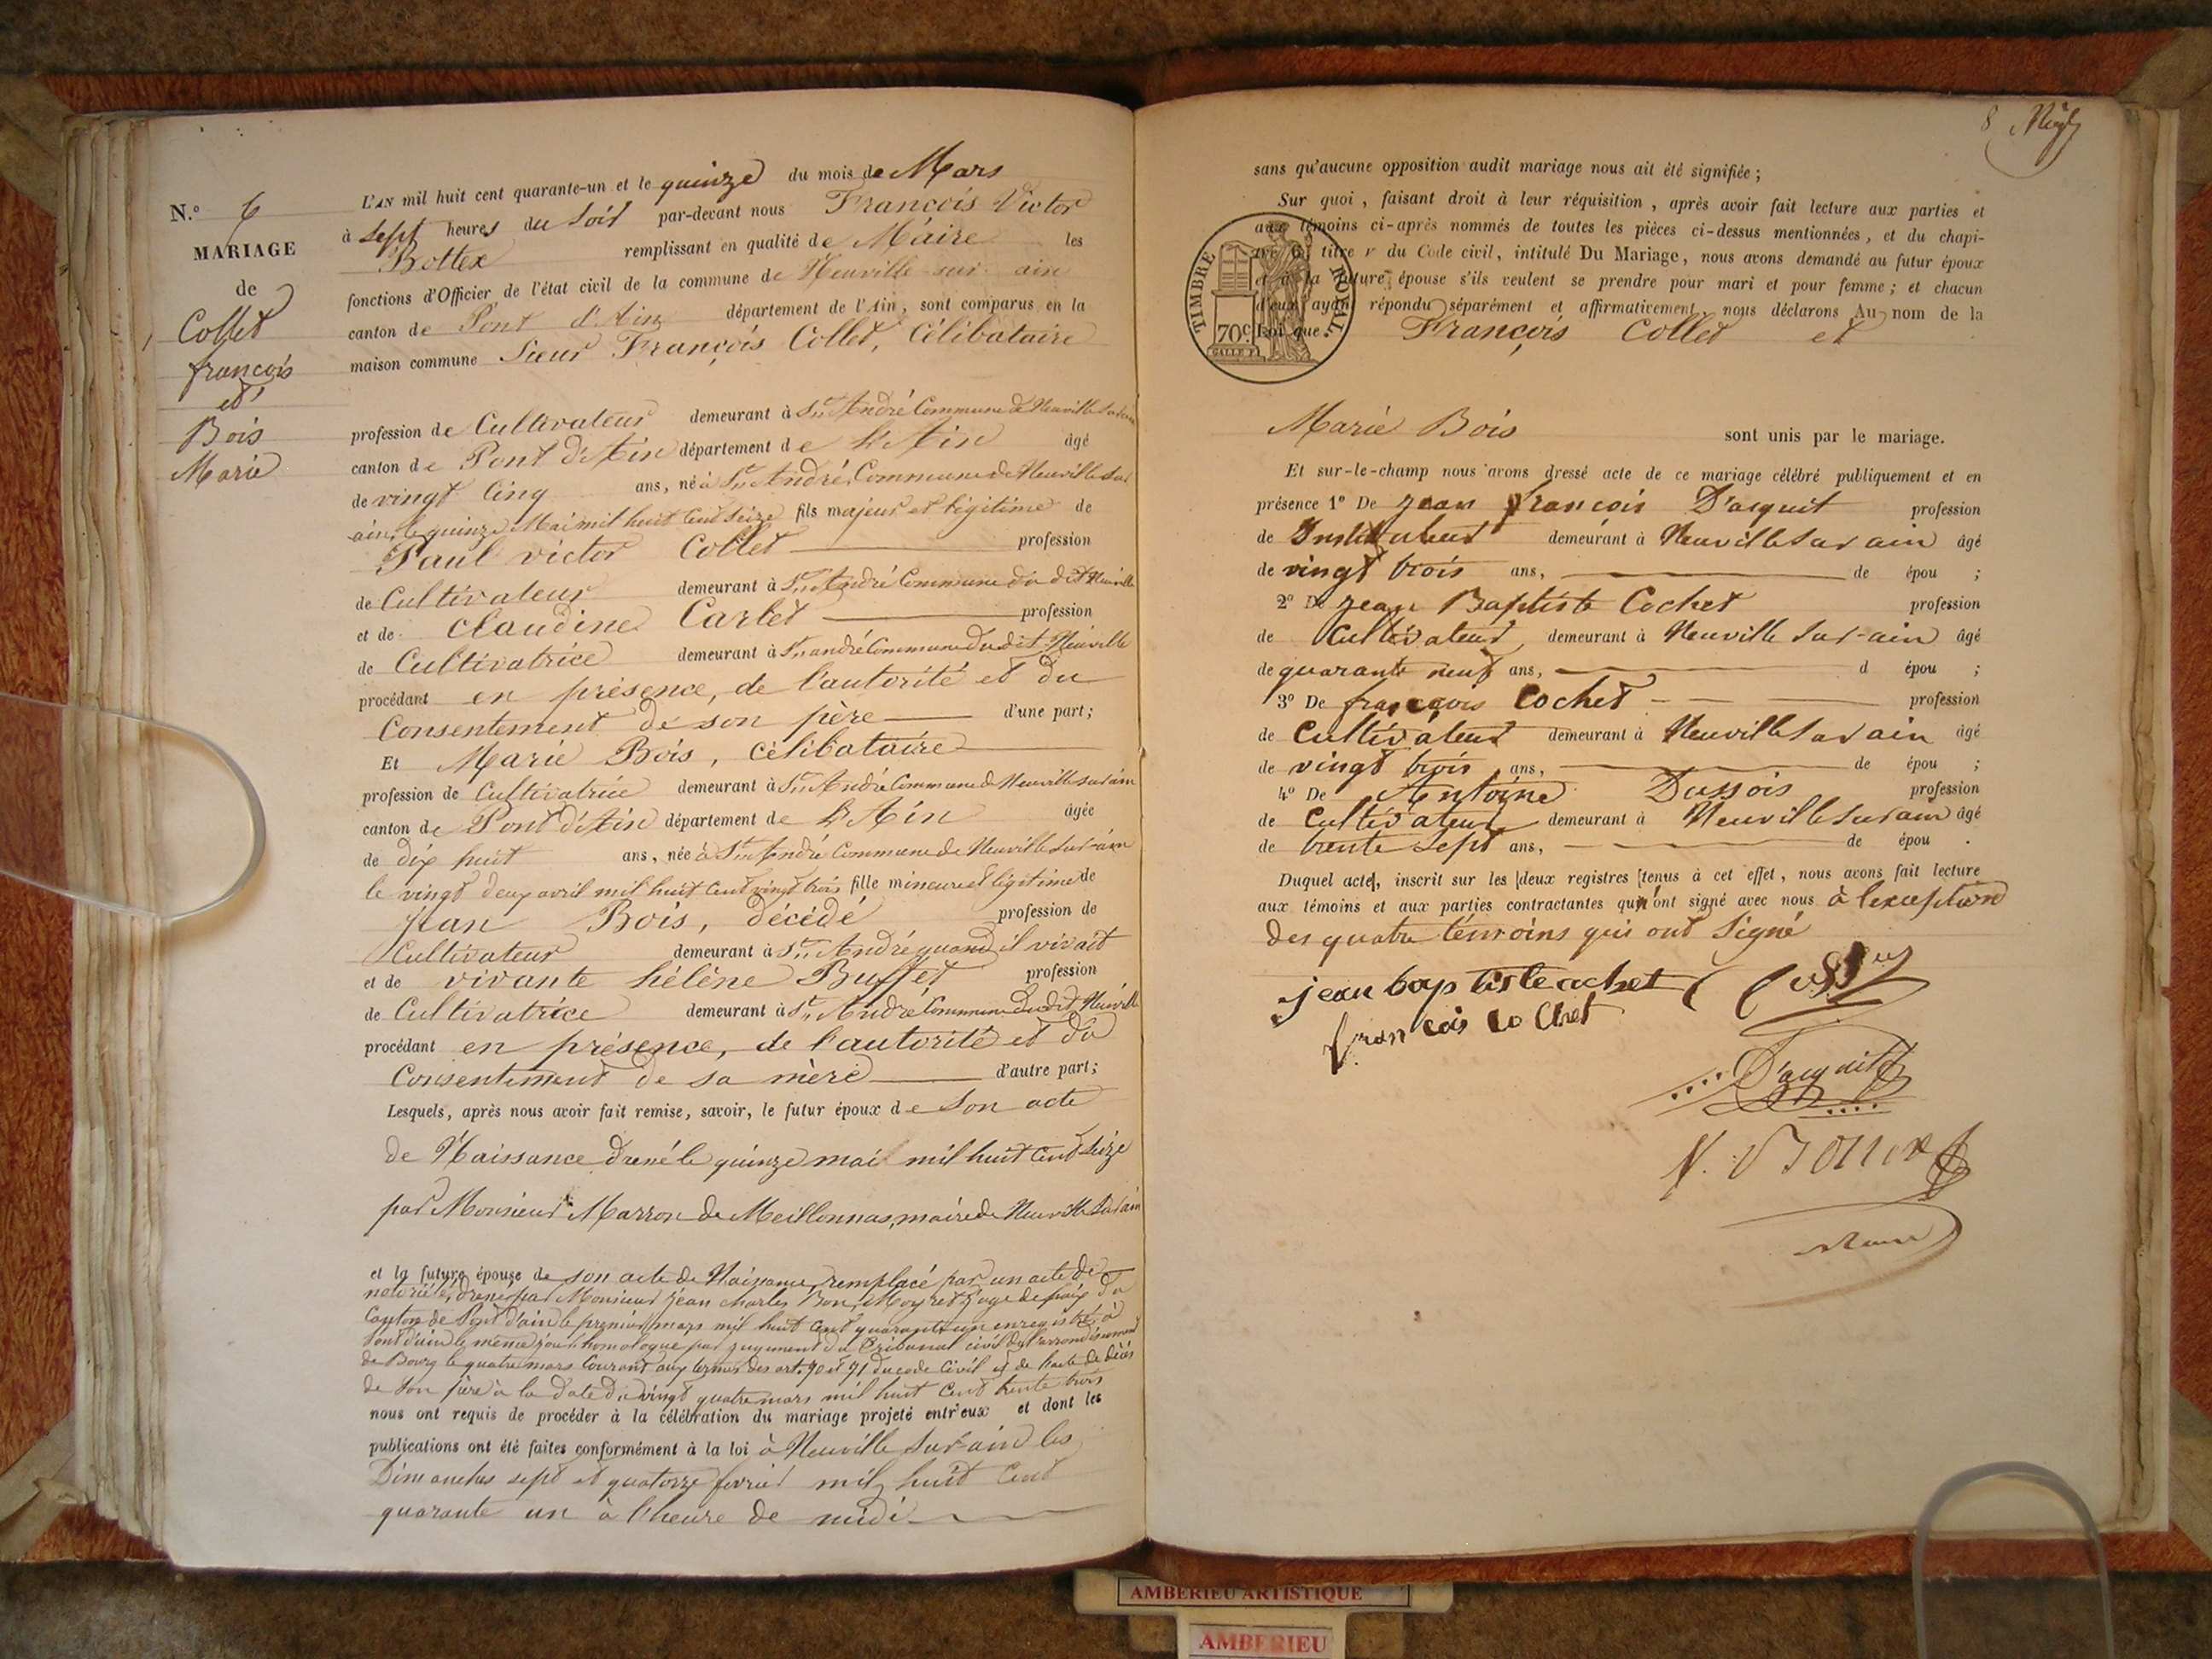 N.º 6
MARIAGE
de
Collet
françois
et
Bois
Marie
L'AN mil huit cent quarante-un et le quinze du mois de Mars
à Sept heures du Soir par-devant nous François Victor
Bottex remplissant en qualité de Maire les
fonctions d'Officier de l'état civil de la commune de Neuville-sur-ain
canton de Pont d'Ain département de l'Ain, sont comparus en la
maison commune Sieur François Collet, Célibataire
profession de Cultivateur demeurant à St André Commune de Neuville Sur ain
canton de Pont d'Ain département de L'Ain âgé
de vingt Cinq ans, né à St André, Commune de Neuville Sur
ain, le quinze Mai mil huit Cent Seize fils majeur et légitime de
Paul victor Collet profession
de Cultivateur demeurant à St André Commune du dit Neuville
et de Claudine Carlet profession
de Cultivatrice demeurant à St andré Commune du dit Neuville
procédant en présence, de l'autorité et du
Consentement de son père d'une part;
Et Marie Bois, Célibataire
profession de Cultivatrice demeurant à St André Commune de Neuville sur ain
canton de Pont d'Ain département de L'Ain âgée
de dix huit ans, née à St André Commune de Neuville Sur-ain
le vingt deux avril mil huit Cent vingt trois fille mineure et légitime de
Jean Bois, décédé profession de
Cultivateur demeurant à St André quand il vivait
et de vivante hélène Buffet profession
de Cultivatrice demeurant à St André Commune du dit Neuville
procédant en présence, de l'autorité et du
Consentement de sa mère d'autre part;
Lesquels, après nous avoir fait remise, savoir, le futur époux de Son acte
de Naissance dressé le quinze mai mil huit Cent Seize
par Monsieur Marron de Meillonnas, maire de Neuville Sur ain
et la future épouse de son acte de Naissance, remplacé par un acte de
notoriété, dressé par Monsieur Jean Charles Bon, Moyret Juge de paix du
Canton de Pont d'ain le premier mars mil huit Cent quarante un enregistré à
Pont d'ain le même jour homologué par jugement du Tribunal civil de l'arrondissement
de Bourg le quatre mars Courant aux termes des art. 70 et 71 du code Civil et de l'acte de décès
de Son père à la date du vingt quatre mars mil huit Cent trente trois
nous ont requis de procéder à la célébration du mariage projeté entr'eux et dont les
publications ont été faites conformément à la loi à Neuville Sur-ain les
Dimanches sept et quatorze fevrier mil huit Cent
quarante un à l'heure de midi
8
sans qu'aucune opposition audit mariage nous ait été signifiée;
Sur quoi, faisant droit à leur réquisition, après avoir fait lecture aux parties et
aux témoins ci-après nommés de toutes les pièces ci-dessus mentionnées, et du chapi-
tre 6, titre v du Code civil, intitulé Du Mariage, nous avons demandé au futur époux
et à la future épouse s'ils veulent se prendre pour mari et pour femme; et chacun
d'eux ayant répondu séparément et affirmativement, nous déclarons Au nom de la
Loi que François Collet et
TIMBRE ROYAL
70 C
Marie Bois sont unis par le mariage.
Et sur-le-champ nous avons dressé acte de ce mariage célébré publiquement et en
présence 1º De Jean François D'acquit profession
de Instituteur demeurant à Neuville Sur ain âgé
de vingt trois ans, de épou ;
2º De Jean Baptiste Cochet profession
de Cultivateur demeurant à Neuville Sur-ain âgé
de quarante neuf ans, d épou ;
3º De françois Cochet profession
de Cultivateur demeurant à Neuville Sur ain âgé
de vingt trois ans, de épou ;
4º De Antoine Dussois profession
de Cultivateur demeurant à Neuville Sur ain âgé
de trente Sept ans, de épou .
Duquel acte, inscrit sur les deux registres tenus à cet effet, nous avons fait lecture
aux témoins et aux parties contractantes qui n'ont signé avec nous à l'exception
des quatre témoins qui ont Signé
jean baptiste cochet
francois co Chet
D'acquit
V. Bottex
Maire
AMBERIEU ARTISTIQUE
AMBERIEU